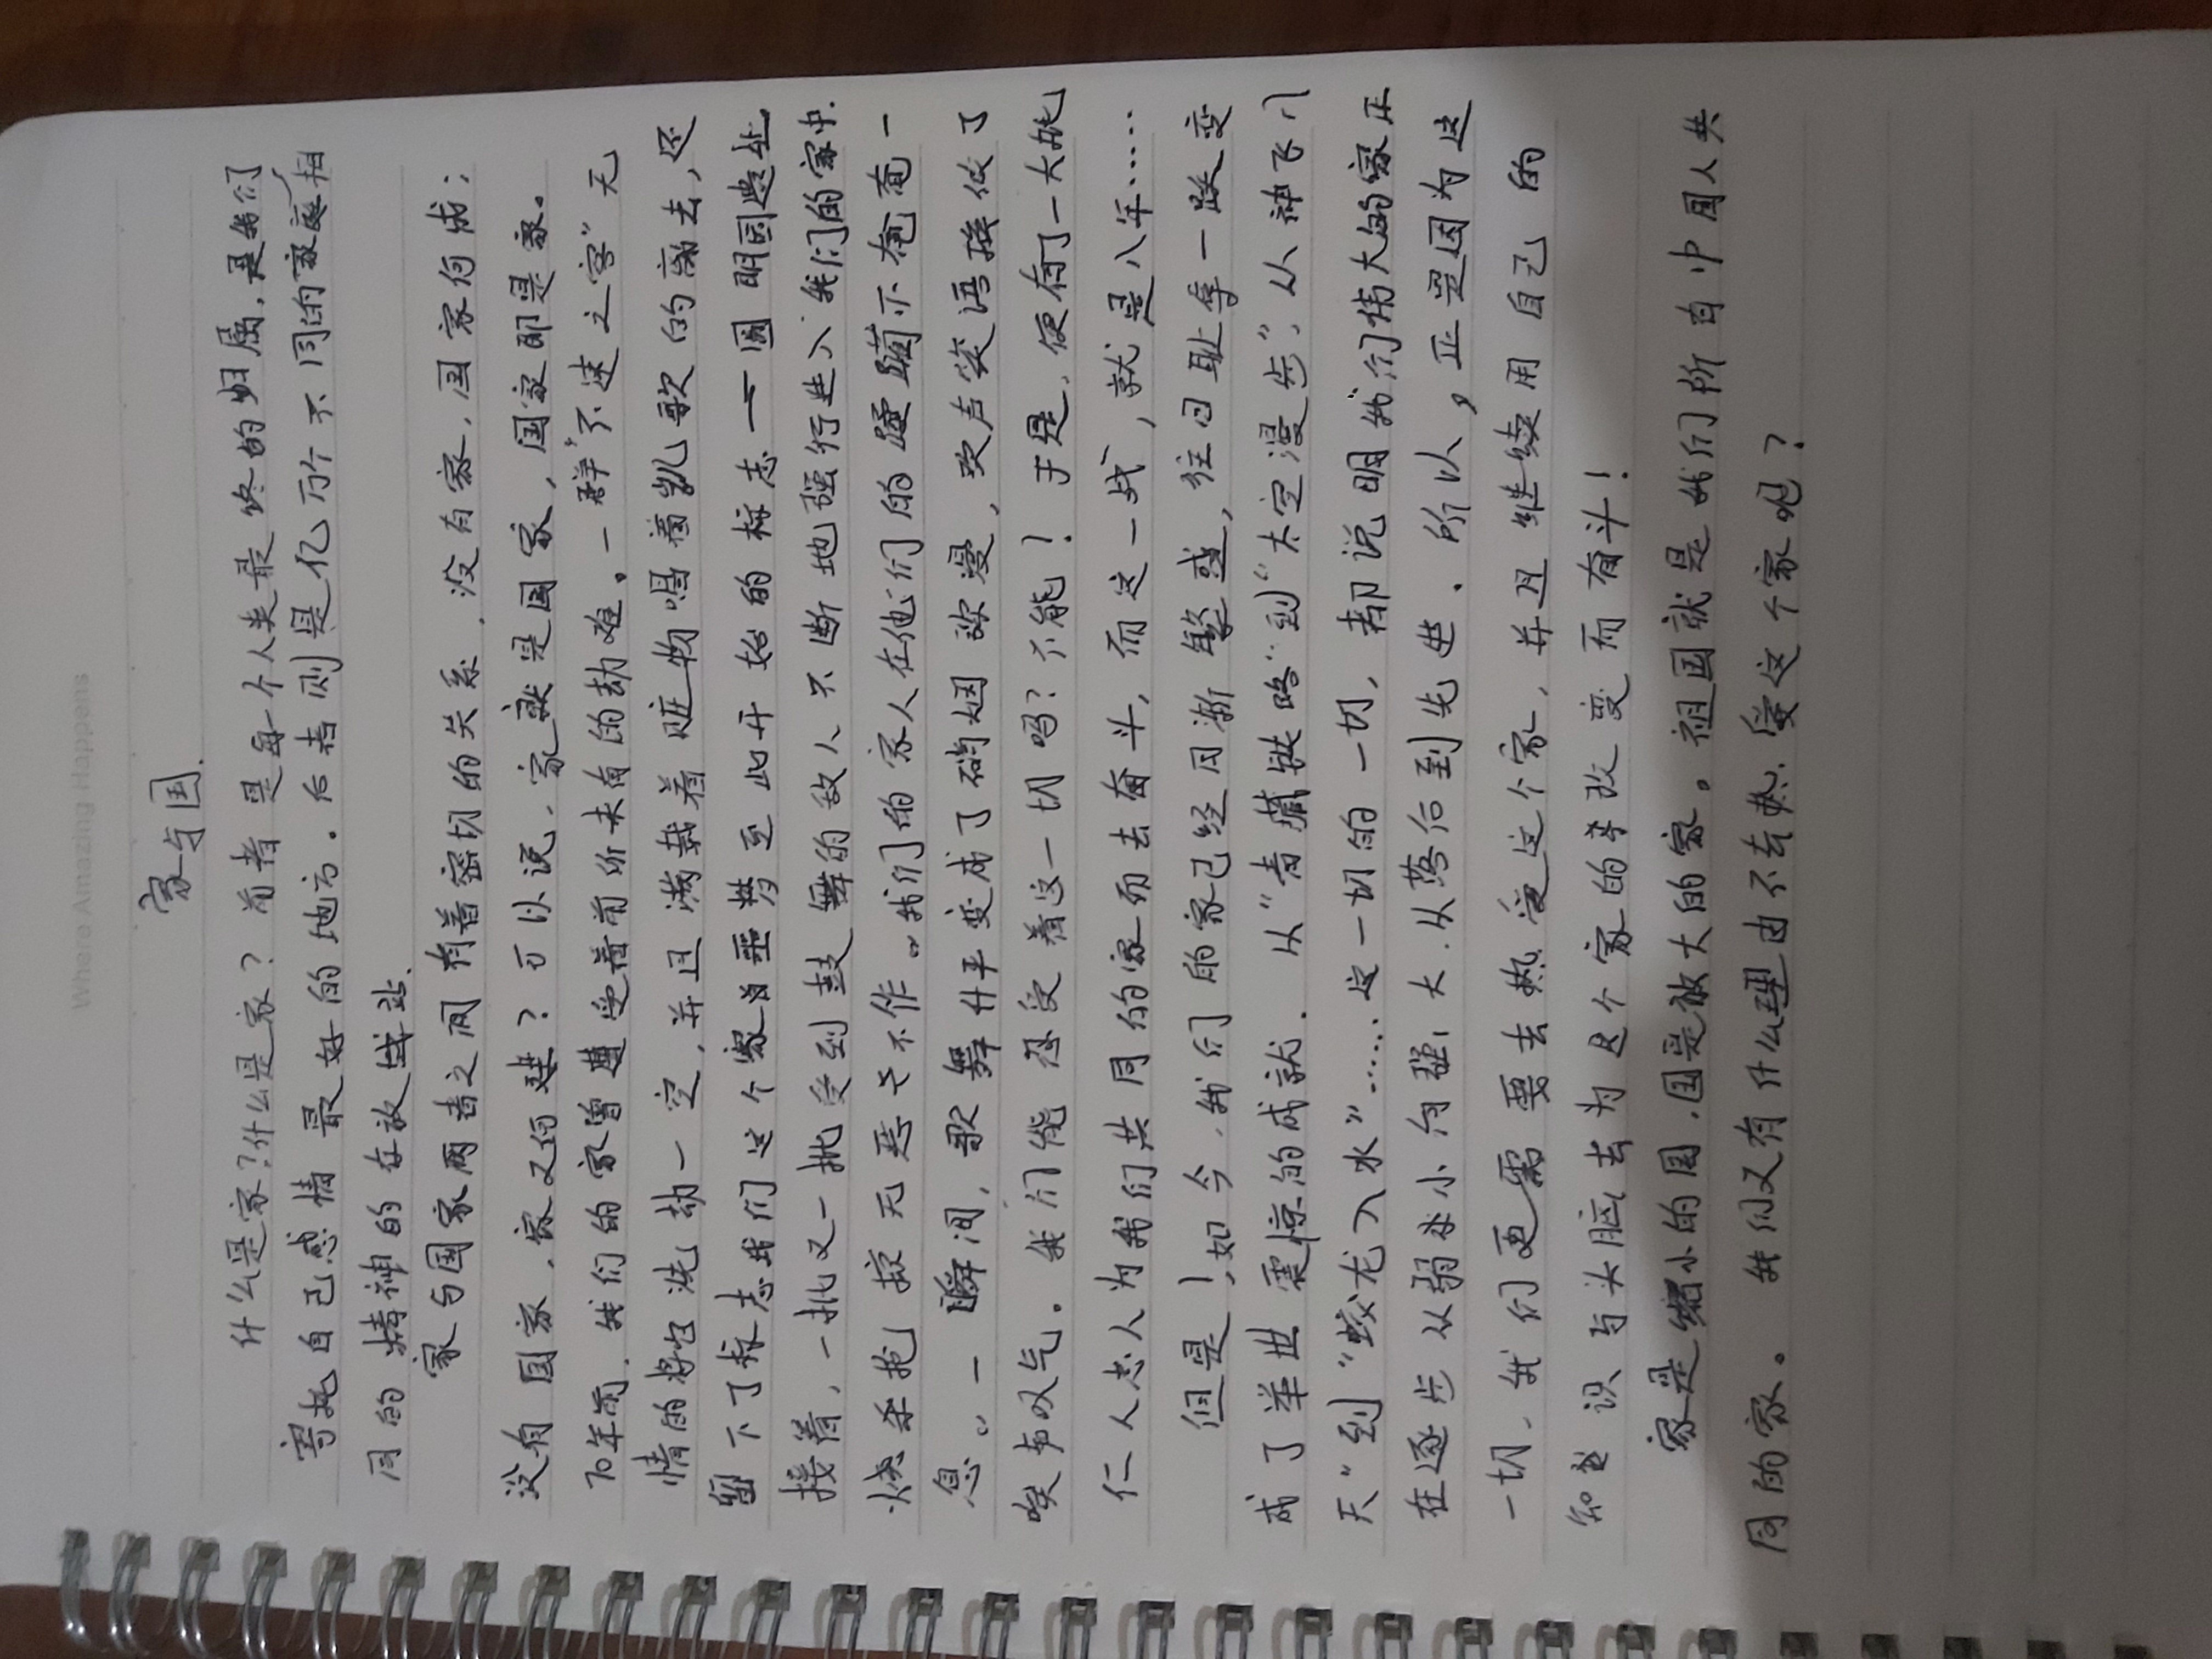 Where Amazing Happens
家与国.
什么是家?什么是家?前者是每个人类最终的归属,是我们
寄托自己感情最好的地方.后者则是亿万个不同的家庭相
同的精神的存放
家与国家两者之间有着密切的关系.没有家,国家何成;
没有国家,家又何建?可以说,家就是国家,国家即是家。
70年前,我们的家曾遭受着前所未有的劫难。一群“不速之客”无
情的将它洗劫一空,并且满载着赃物唱着凯歌的离去,还
留下了标志我们这个家噩梦至此开始的标志——圆明园遗址
接着,一批又一批受到鼓舞的敌人不断地强行进入我们的家中.
烧杀抢掠无恶不作。我们的家人在他们的蹂躏下奄奄一
息。一瞬间,歌舞升平变成了硝烟弥漫,欢声笑语换做了
唉声叹气.我们能忍受着这一切吗?不能!于是,便有了一大批
仁人志人为我们共同的家而去奋斗,而这一战,就是八年……
但是!如今,我们的家已经日渐繁盛,往日耻辱一跃变
成了举世震惊的成就.从“青藏铁路”到“太空漫步”,从“神飞八
天”到“蛟龙入水”……这一切的一切,都说明我们伟大的家正
在逐步从弱小向强大.从落后到先进.所以,正是因为这
一切,我们更需要去热爱这个家,并且继续用自己的
知识与头脑去为这个家的改变而奋斗!
家是缩小的国,国是放大的家。祖国就是我们所有中国人共
同的家。我们又有什么理由不去热爱这个家呢?